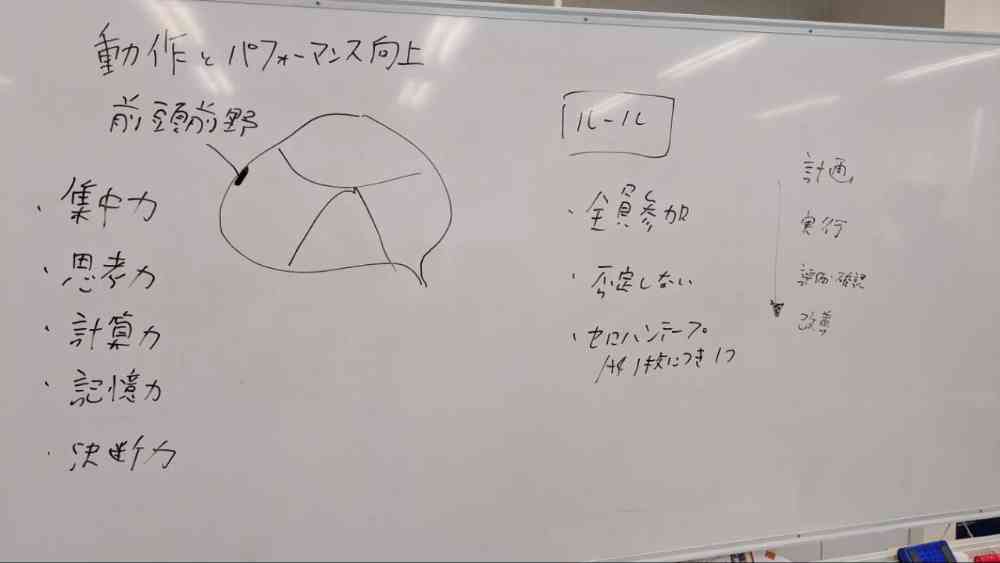 動作とパフォーマンス向上
前頭前野
・集中力
・思考力
・計算力
・記憶力
・決断力
ルール
・全員参加
・否定しない
・セロハンテープ
A4 1枚につき1つ
計画
実行
評価・確認
改善